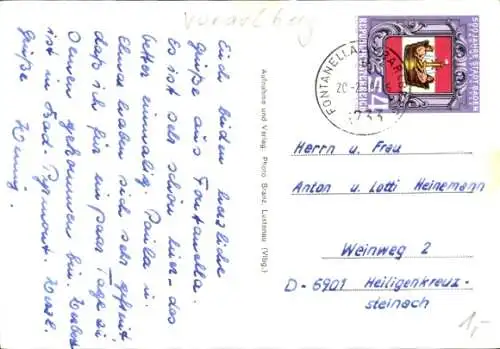 Vorarlberg
Euch beiden herzliche
Grüße aus Fontanella.
Es ist sehr schön hier - das
Wetter einmalig. Paula u.
Elmar haben sich sehr gefreut
daß ich für ein paar Tage zu
Ihnen gekommen bin.
ist in Bad Pyrmont. Herzl.
Grüße
Aufnahme und Verlag: Photo Branz, Lustenau (Vlbg.)
FONTANELLA
20.2
6733
500 JAHRE STADT BADEN
REPUBLIK ÖSTERREICH
S4
Herrn u. Frau
Anton u. Lotti Heinemann
Weinweg 2
D - 6901 Heiligenkreuz-
steinach
1,-